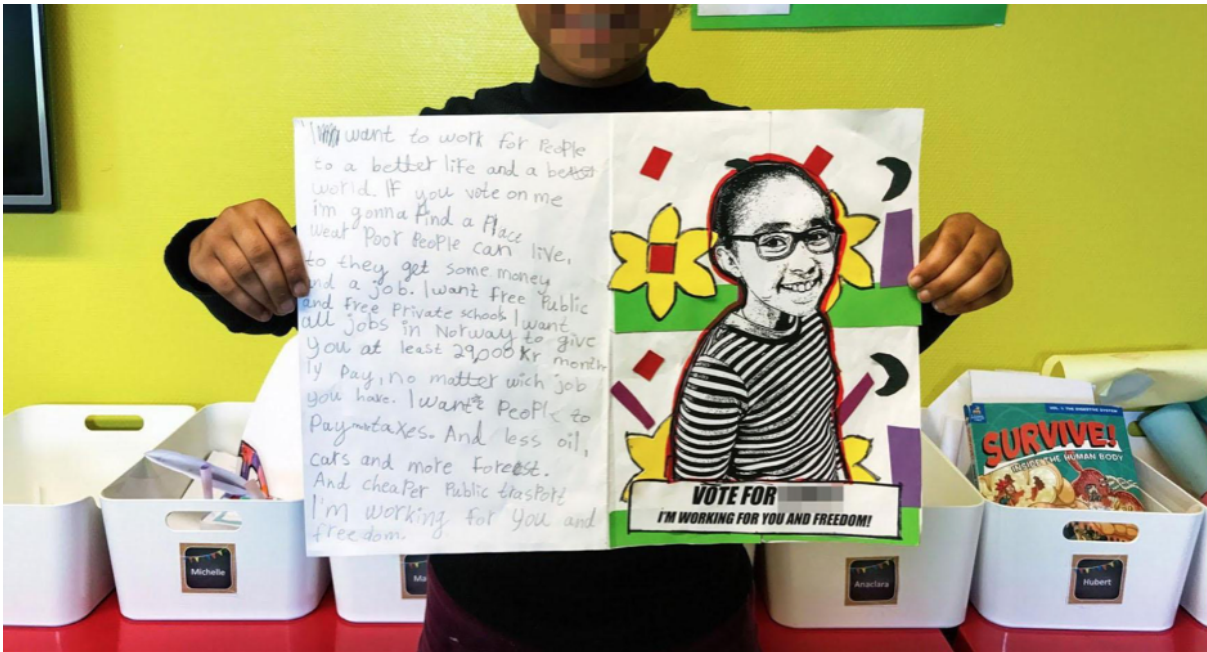 I want to work for people
to a better life and a better
world. If you vote on me
i'm gonna find a place
wear Poor People can live,
to they get some money
and a job. I want free Public
and free Private schools I want
all jobs in Norway to give
you at least 29,000 Kr month
ly Pay, no matter wich job
you have. I want PeoPle to
Pay taxes. And less oil,
cars and more forest.
And cheaper Public trasport
I'm working for you and
freedom.
VOTE FOR
I'M WORKING FOR YOU AND FREEDOM!
VOL. 1: THE DIGESTIVE SYSTEM
SURVIVE!
INSIDE THE HUMAN BODY
Michelle
Ma
Anaclara
Hubert